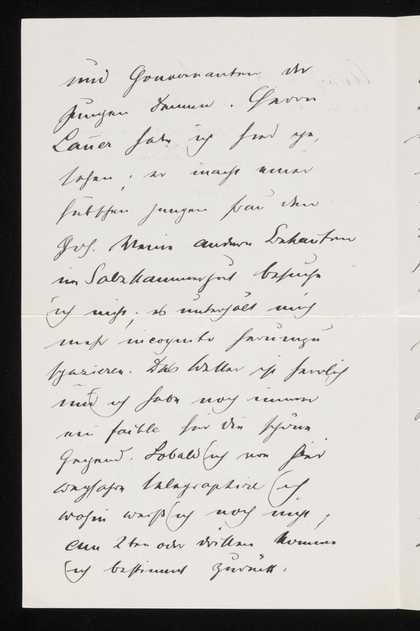 und Gouvernanten der
jungen Damen. Herrn
Lauer habe ich hier ge,
sehen; er macht einer
hübschen jungen Frau den
Hof. Meine andern Bekannten
im Salzkammergut besuche
ich nicht; es unterhält mich
mehr incognito herumzu
spazieren. Das Wetter ist herrlich
und ich habe noch immer
ein faible für die schöne
Gegend. Sobald ich von hier
wegfahre telegraphire ich
wohin weiß ich noch nicht;
am 2ten oder dritten komme
ich bestimmt zurück.